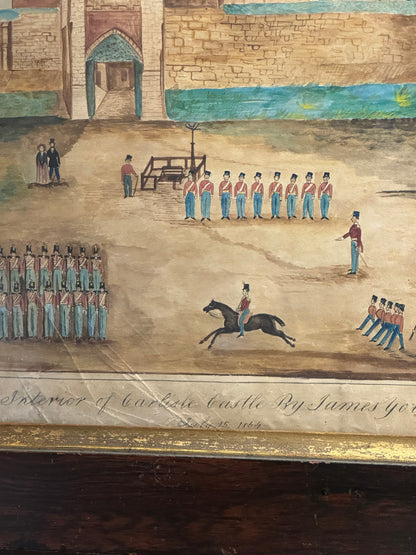 Interior of Carlisle Castle By James
July 15 1864